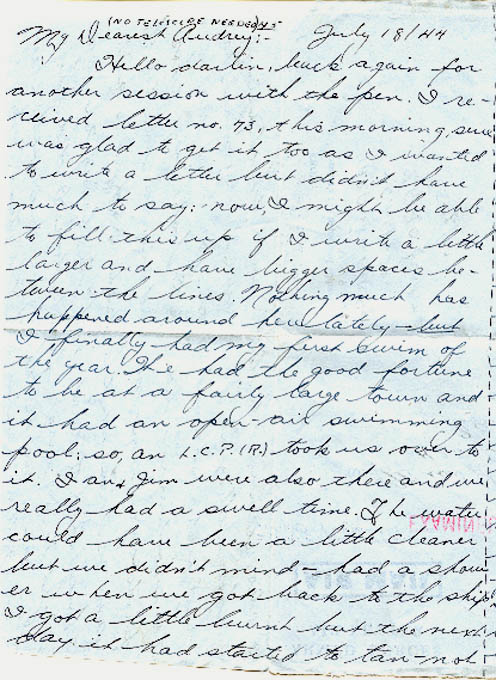 (NO TELESCOPE NEEDED)
My Dearest Audrey:- July 18/44
Hello darlin, back again for
another session with the pen. I re-
ceived letter no. 73, this morning, sure
was glad to get it too as I wanted
to write a letter but didn't have
much to say: now, I might be able
to fill this up if I write a little
larger and have bigger spaces be-
tween the lines. Nothing much has
happened around here lately - but
I finally had my first swim of
the year. We had the good fortune
to be at a fairly large town and
it had an open-air swimming
pool; so, an L.C.P.(R.) took us over to
it. Ian & Jim were also there and we
really had a swell time. The water
EXAMIN
could have been a little cleaner
but we didn't mind - had a show-
er when we got back to the ship
I got a little burnt but the next
day it had started to tan - not